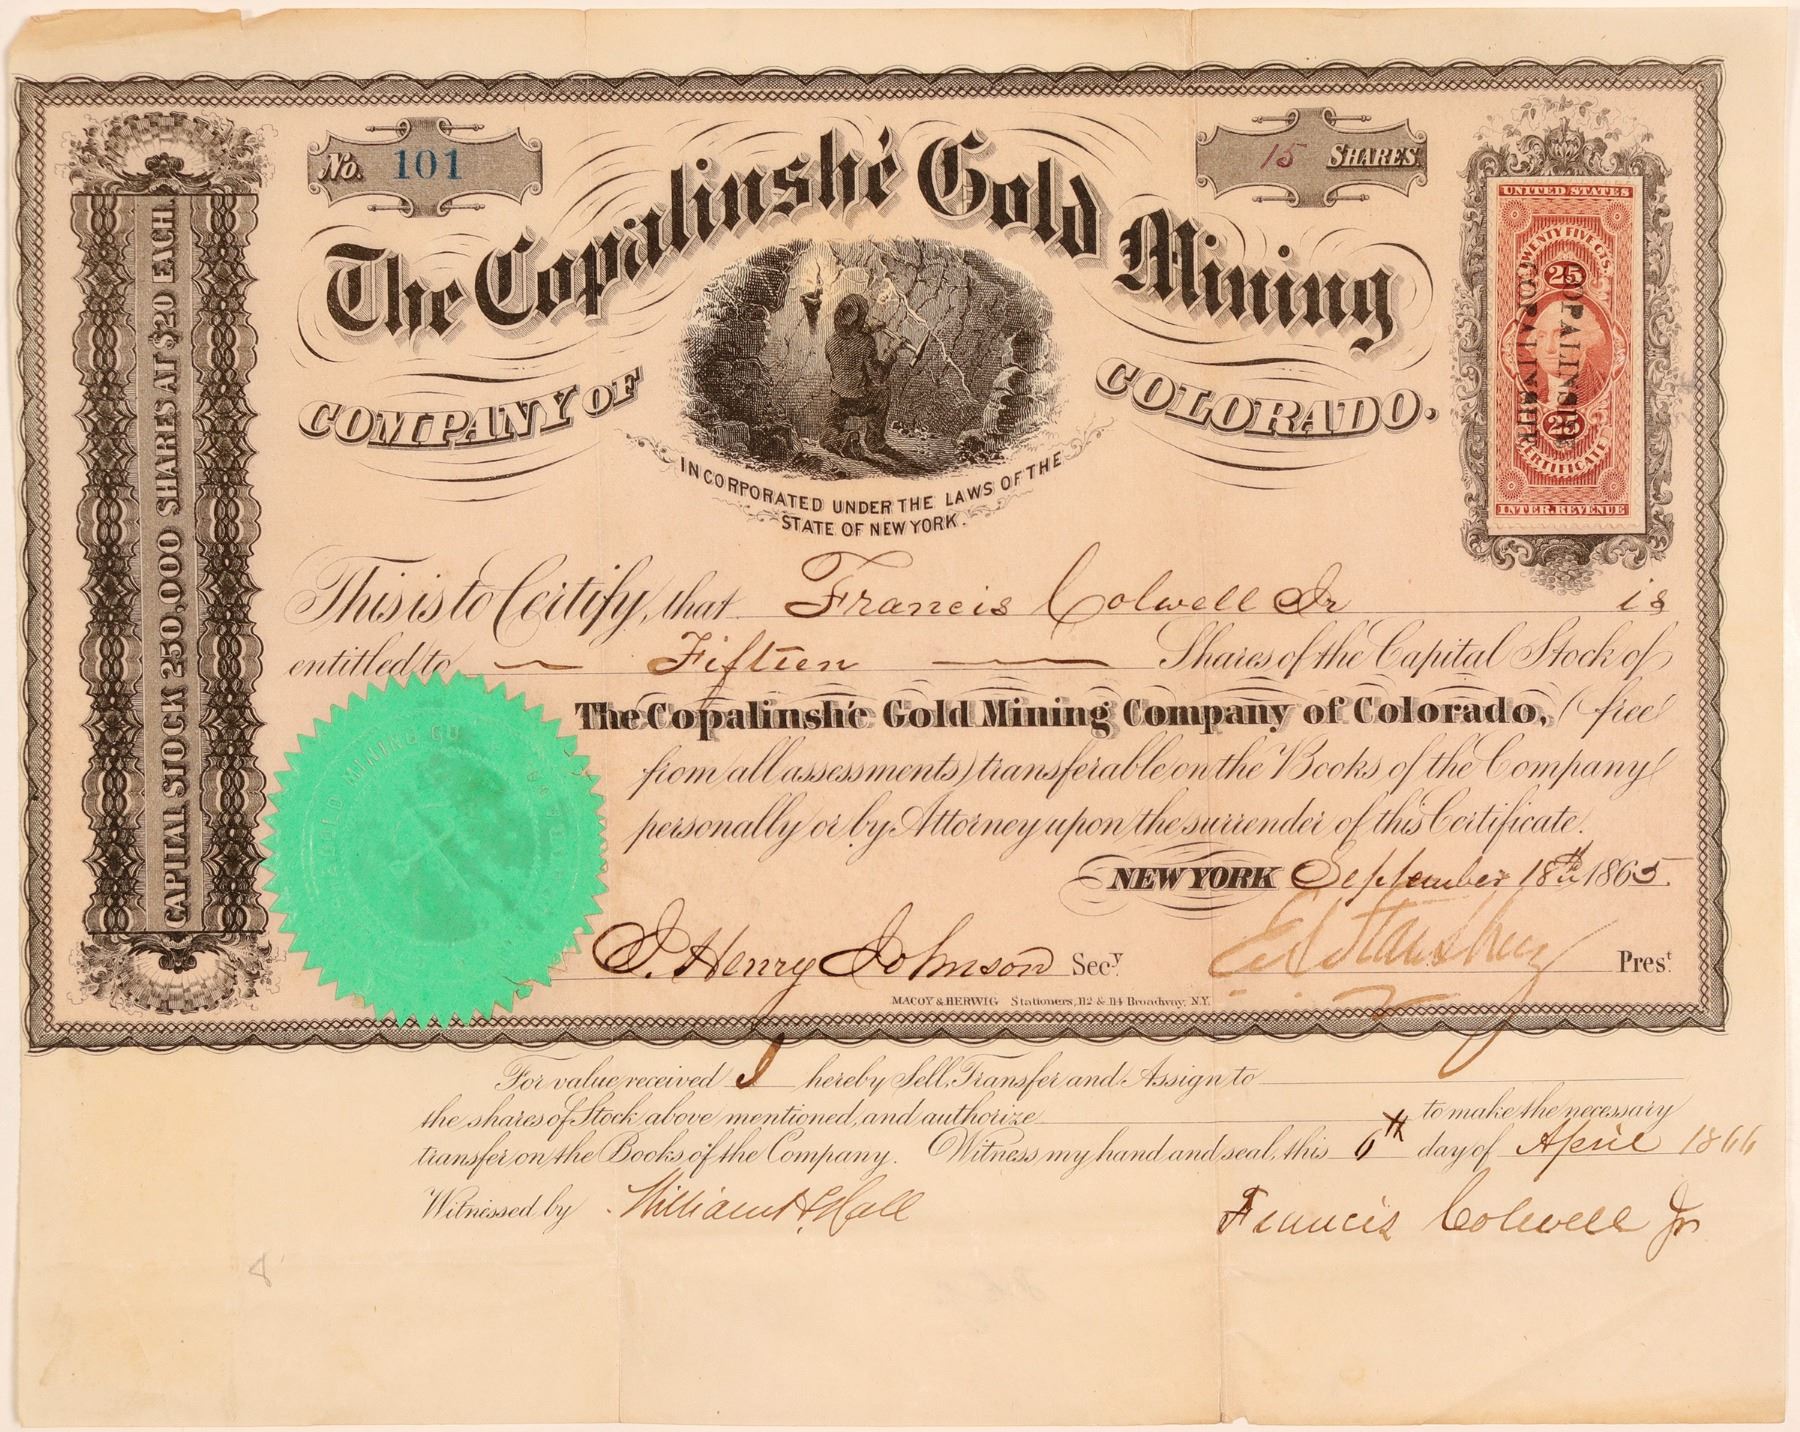 No. 101
15 SHARES
The Copalinshé Gold Mining
COMPANY OF COLORADO.
INCORPORATED UNDER THE LAWS OF THE
STATE OF NEW YORK.
CAPITAL STOCK 250,000 SHARES AT $20 EACH.
UNITED STATES
TWENTY FIVE CTS.
25
COPALINSHE
COPALINSHE
25
CERTIFICATE
INTER. REVENUE
This is to Certify, that Francis Colwell Jr is
entitled to Fifteen Shares of the Capital Stock of
The Copalinshé Gold Mining Company of Colorado, (free
from all assessments) transferable on the Books of the Company
personally or by Attorney upon the surrender of this Certificate.
NEW YORK September 18th 1865.
GOLD MINING CO
J. Henry Johnson Secy. Prest.
MACOY & HERWIG Stationers, 112 & 114 Broadway, N.Y.
For value received I hereby Sell, Transfer and Assign to
the shares of Stock above mentioned, and authorize to make the necessary
transfer on the Books of the Company. Witness my hand and seal, this 6th day of April 1866
Witnessed by William H Hall Francis Colwell Jr
8